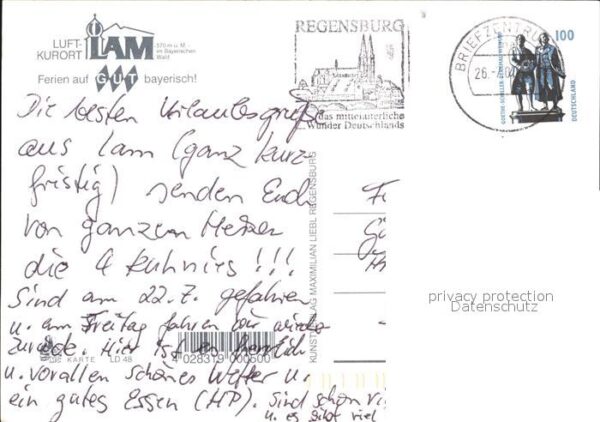 LUFT-
KURORT
LAM
570 m ü. M.
im Bayerischen
Wald
Ferien auf GUT bayerisch!
REGENSBURG
das mittelalterliche
Wunder Deutschlands
BRIEFZENTRUM
26.
100
GOETHE-SCHILLER-DENKMAL WEIMAR
DEUTSCHLAND
Die besten Urlaubsgrüße
aus Lam (ganz kurz-
fristig) senden Euch
von ganzem Herzen
die 4 Kuhnies!!!
Sind am 22.7. gefahren
u. am Freitag fahren wir wieder
zurück. Hier ist es herrlich
u. vorallen schönes Wetter u.
ein gutes Essen (HP). Sind schon viel
u. es gibt viel
KUNSTVERLAG MAXIMILIAN LIEBL REGENSBURG
DIE KARTE LD 48
4 028319 000500
privacy protection
Datenschutz